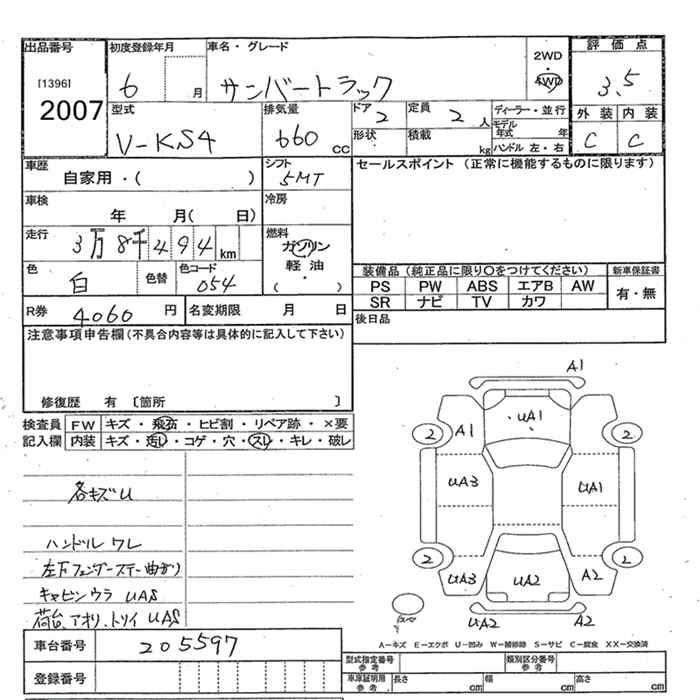 出品番号
[1396]
2007
初度登録年月
6 月
車名・グレード
サンバートラック
2WD
・
4WD
評価点
3.5
外装 内装
C C
型式
V-KS4
排気量
660 CC
ドア 2
形状
定員 2 人
積載 kg
ディーラー・並行
モデル年式 年
ハンドル 左・右
車歴
自家用・( )
シフト
5MT
セールスポイント (正常に機能するものに限ります)
車検
年 月( 日)
冷房
走行
3万8千494km
燃料
ガソリン
軽油
・
( )
色
白
色替
色コード
054
装備品(純正品に限り〇をつけてください)
新車保証書
PS PW ABS エアB AW
SR ナビ TV カワ
有・無
R券 4060 円
名変期限 月 日
後日品
注意事項申告欄(不具合内容等は具体的に記入して下さい)
修復歴 有 〔箇所 〕
検査員記入欄
FW キズ・飛石・ヒビ割・リペア跡・×要
内装 キズ・汚レ・コゲ・穴・スレ・キレ・破レ
各キズU
ハンドルワレ
左下フェンダーステー曲がり
キャビンウラ UAS
荷台、アオリ、トリイ UAS
A1
UA1
2 A1 2
UA3 UA1
2 2
UA3 UA2 A2
UA2 A2
A-キズ E-エクボ U-凹み W-補修跡 S-サビ C-腐食 XX-交換済
車台番号 205597
登録番号
型式指定番号 参考
類別区分番号 参考
車庫証明用 参考
長さ cm
幅 cm
高さ cm